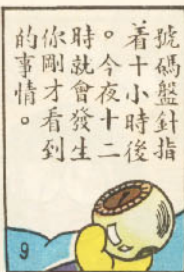 號碼盤針指
着十小時後
。今夜十二
時就會發生
你剛才看到
的事情。
9